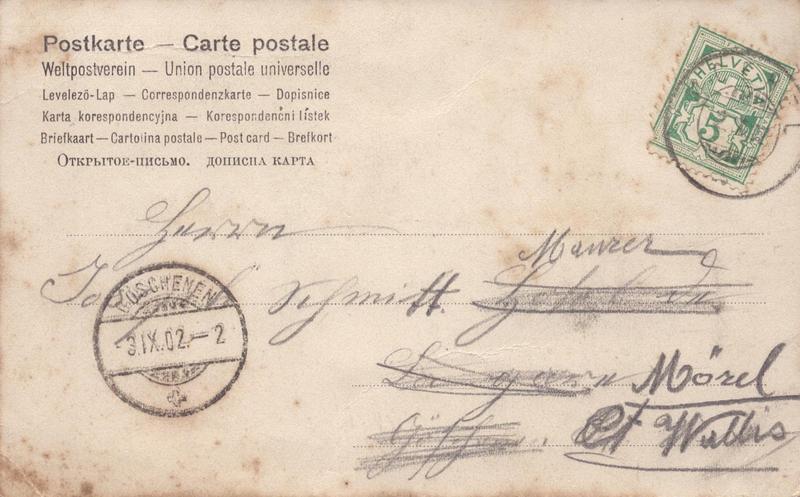 Postkarte — Carte postale
Weltpostverein — Union postale universelle
Levelező-Lap — Correspondenzkarte — Dopisnice
Karta korespondencyjna — Korespondenční lístek
Briefkaart — Cartolina postale — Post card — Brefkort
Открытое-письмо. дописна карта
HELVETIA
5
Herrn
Maurer
Schmitt
GÖSCHENEN
3.IX.02.–2
Mörel
Ct Wallis